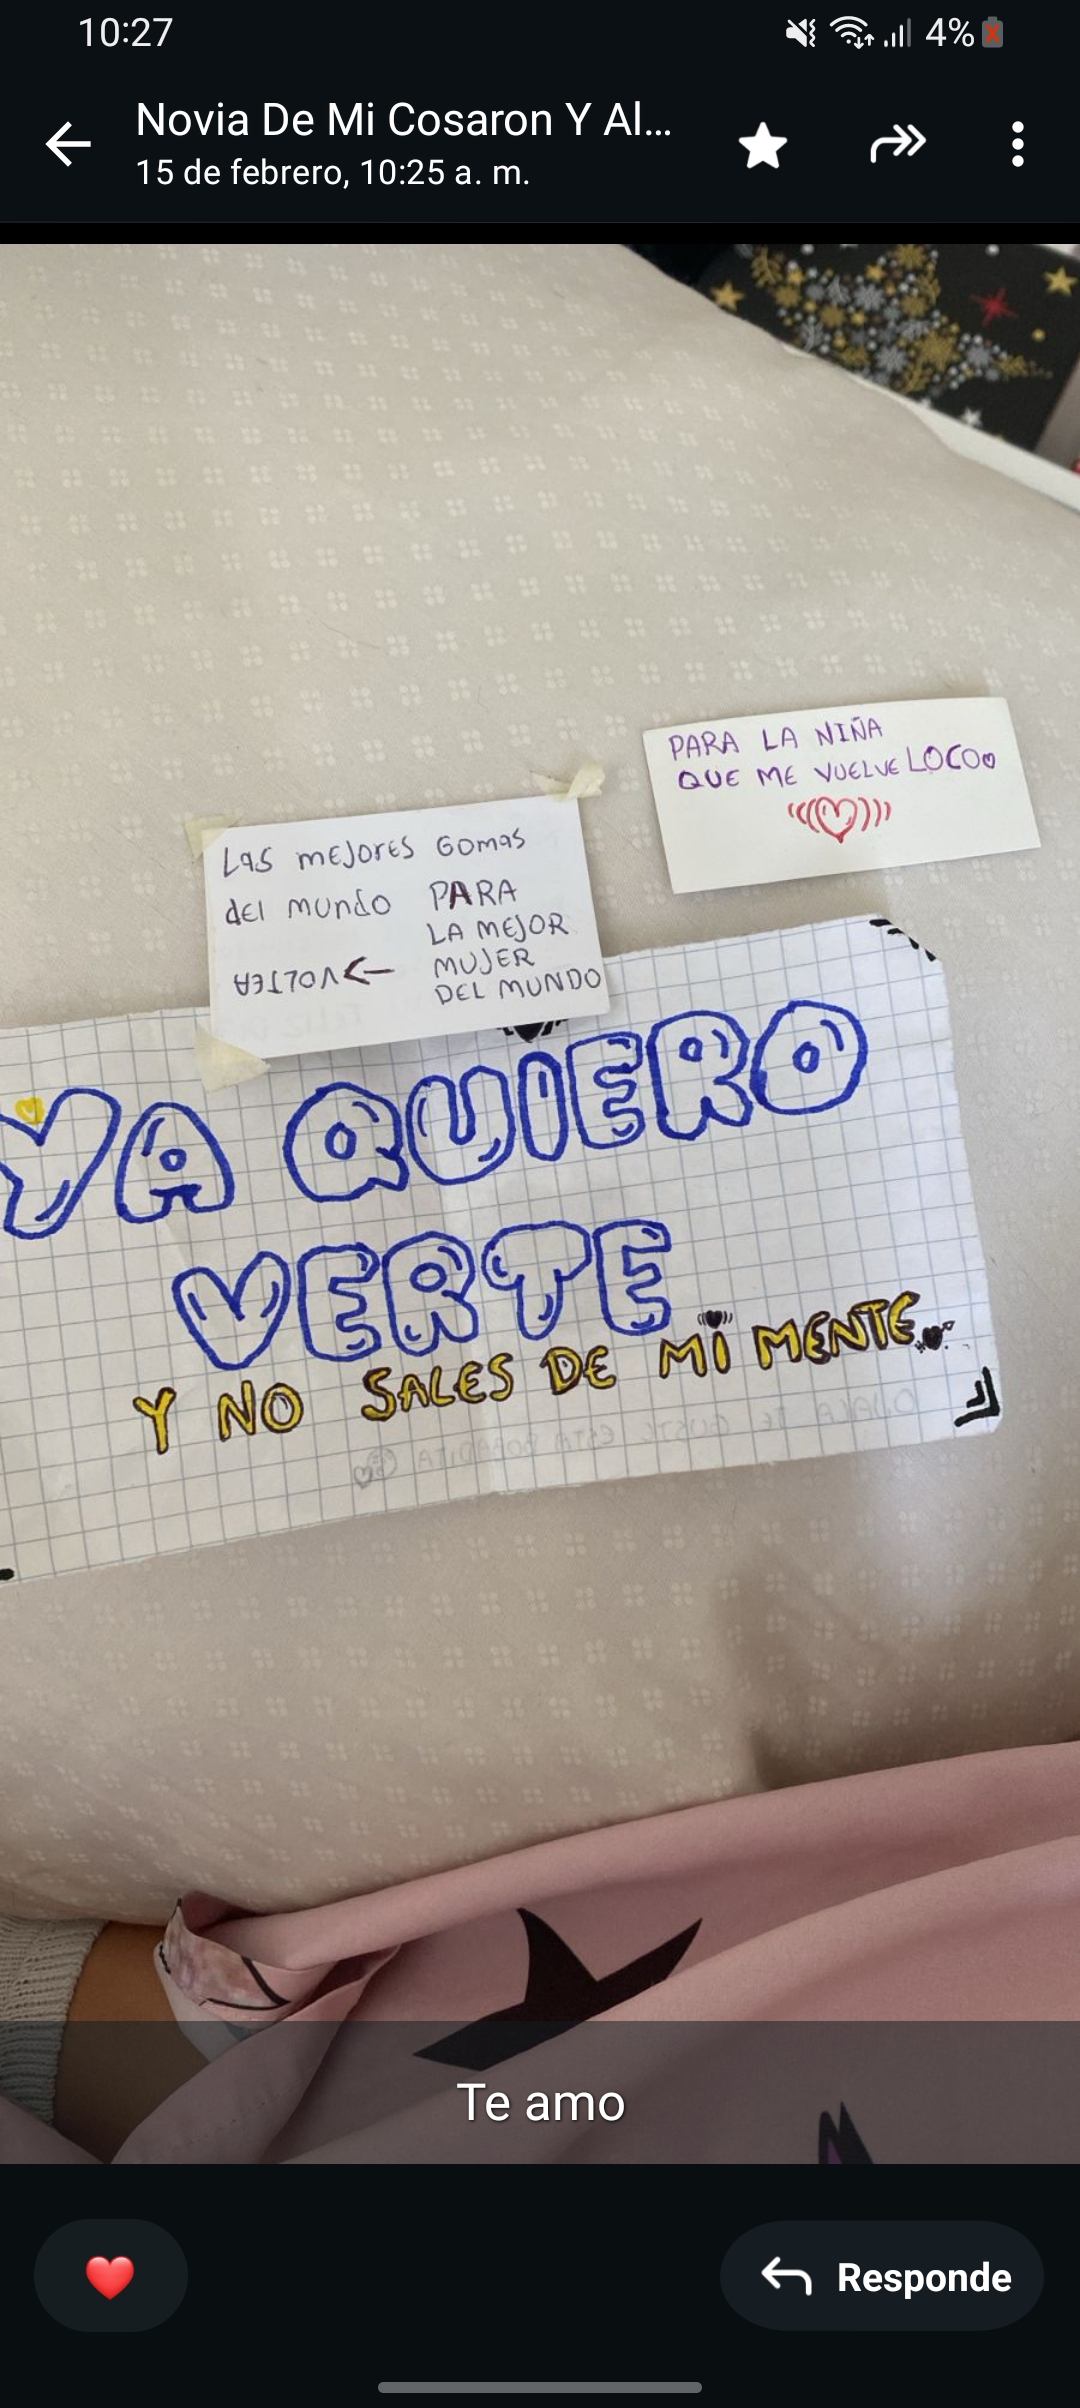 10:27
4%
Novia De Mi Cosaron Y Al...
15 de febrero, 10:25 a. m.
PARA LA NIÑA
QUE ME VUELVE LOCO
Las mejores gomas
del mundo PARA
LA MEJOR
MUJER
DEL MUNDO
VOLTEA
YA QUIERO
VERTE
Y NO SALES DE MI MENTE
OJALA TE GUSTE ESTA BOBADITA
Te amo
Responde